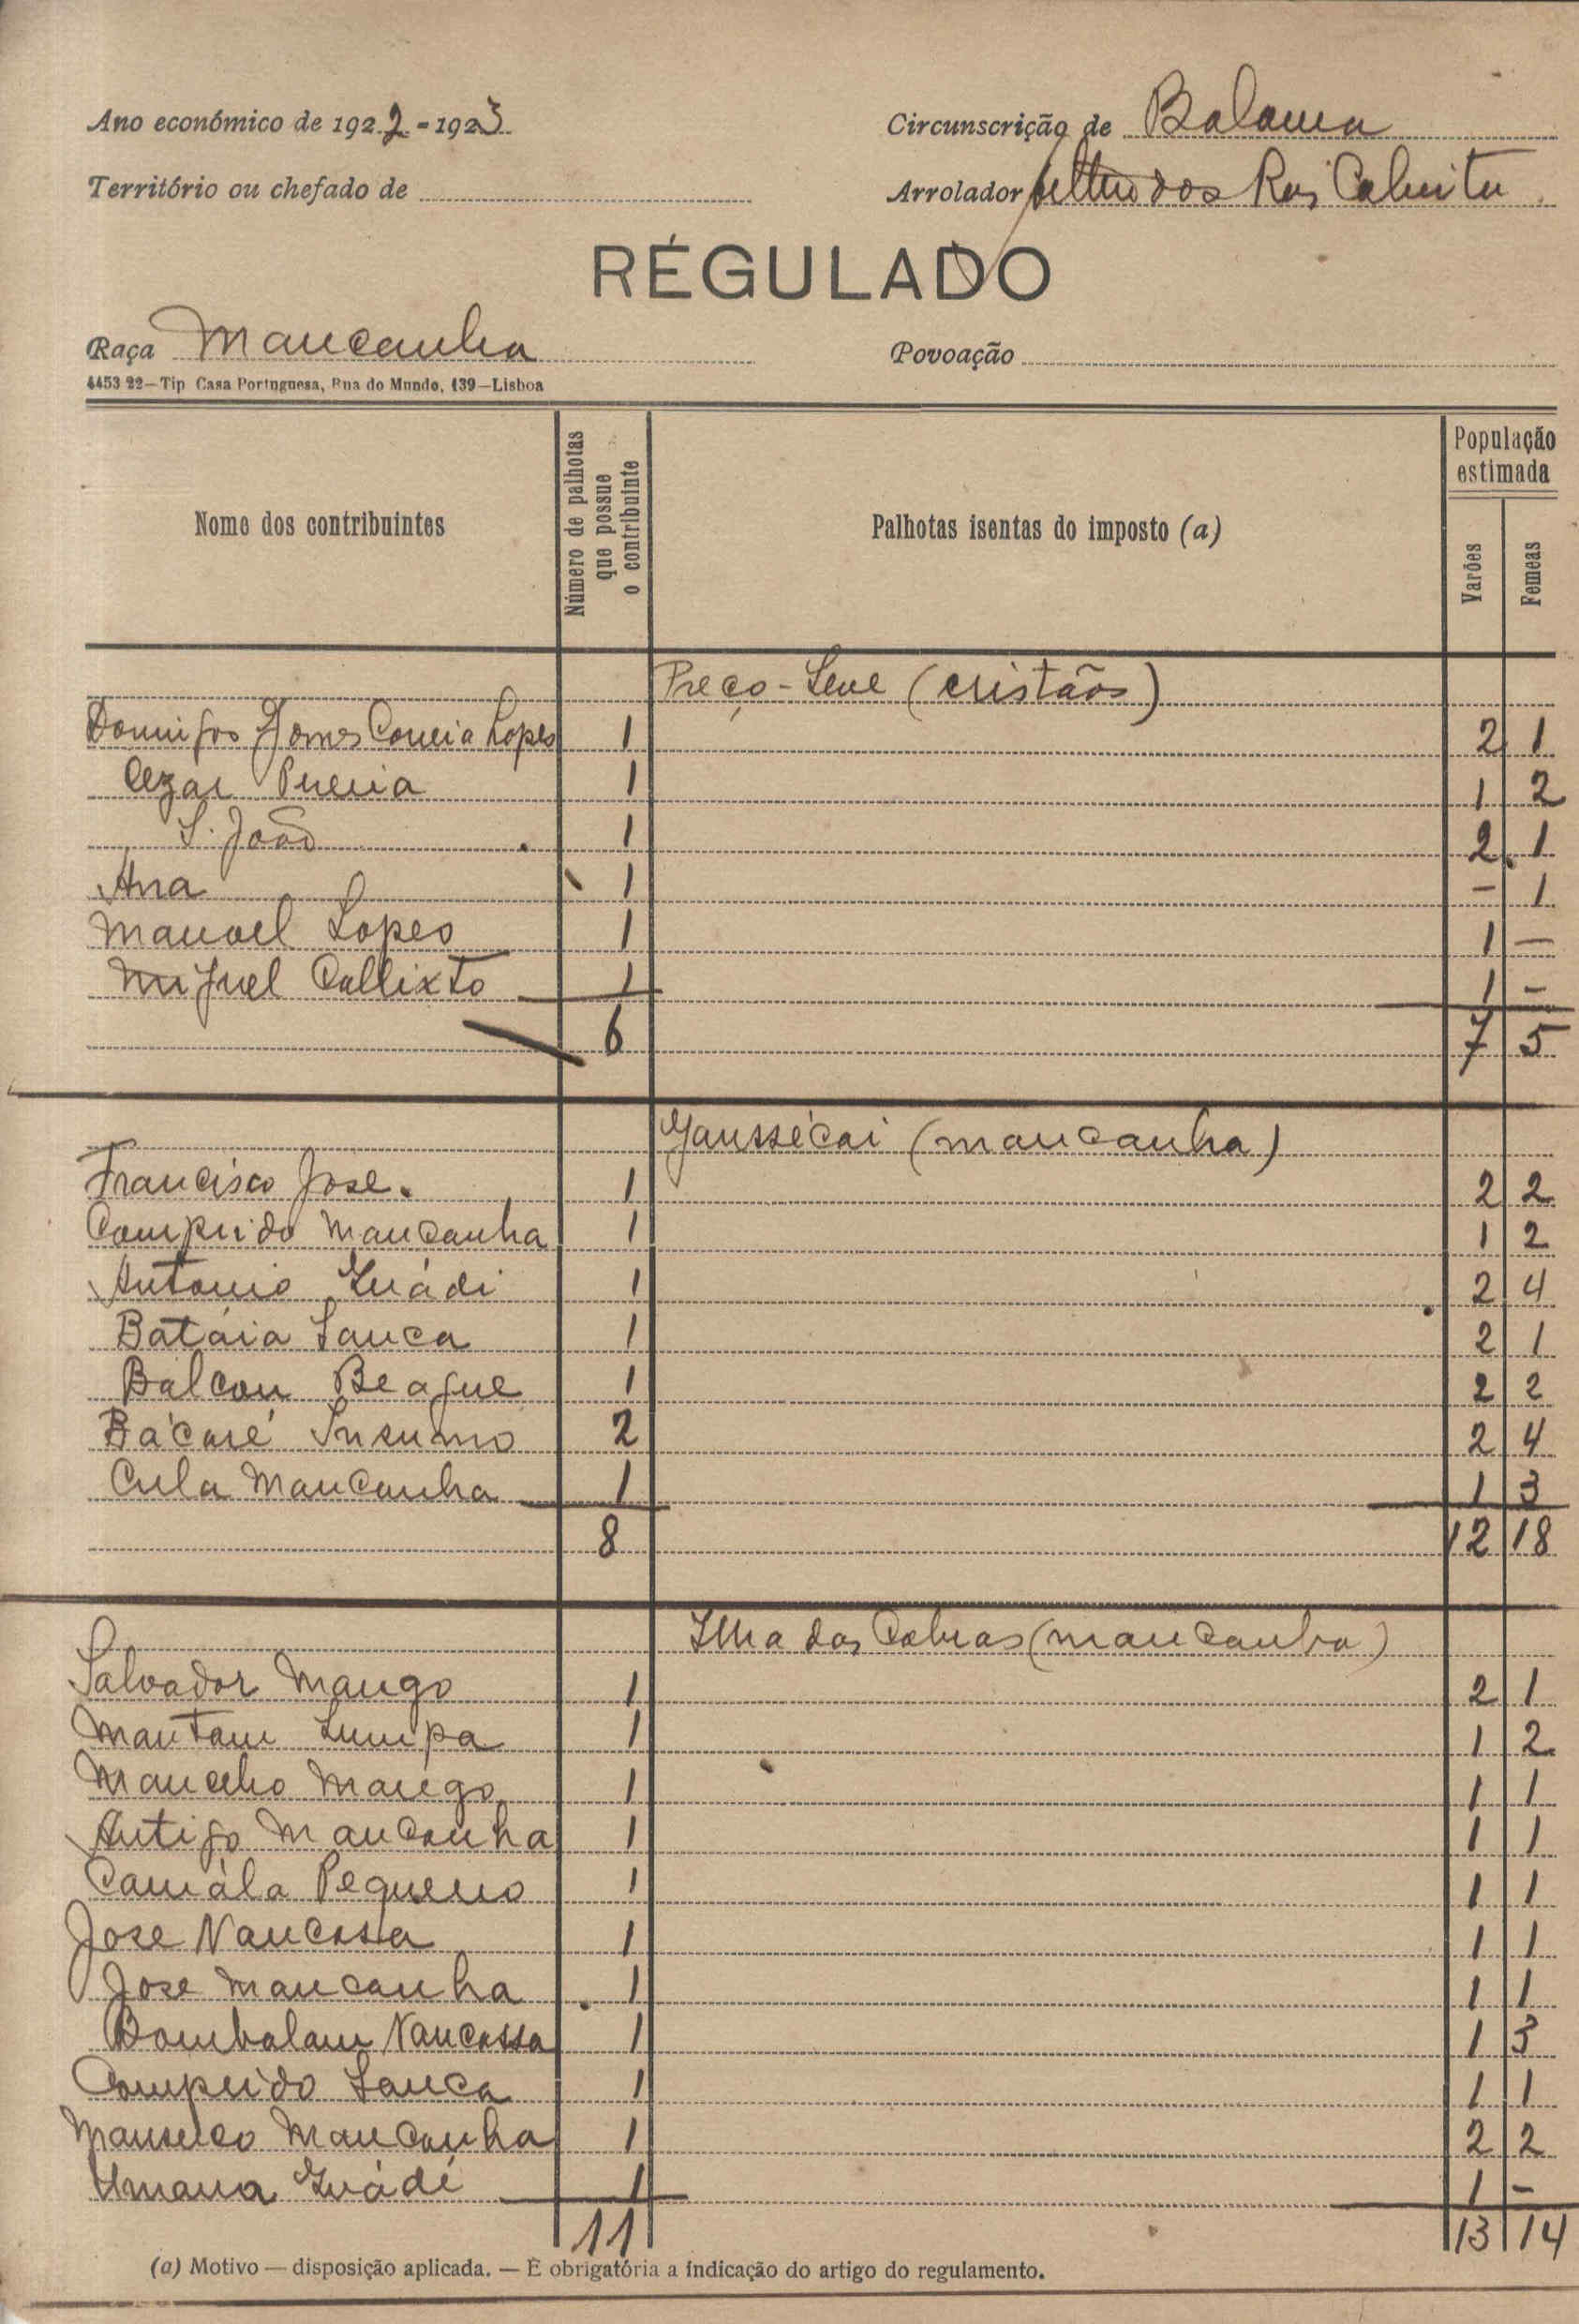 Ano económico de 1922-1923
Circunscrição de Bolama
Território ou chefado de
Arrolador dos Reis
RÉGULADO
Raça Mancanha
Povoação
4453 22—Tip Casa Portuguesa, Rua do Mundo, 139—Lisboa
Nome dos contribuintes
Número de palhotas que possue o contribuinte
Palhotas isentas do imposto (a)
População estimada
Varões
Femeas
Preço-Leve (cristãos)
Domingos Gomes Correia Lopes 1 2 1
Cezar Pereira 1 1 2
S. João 1 2 1
Ana 1 - 1
Manoel Lopes 1 1 -
Miguel Callixto 1 1 -
6 7 5
Gaussécai (mancanha)
Francisco José. 1 2 2
Comprido Mancanha 1 1 2
Antonio Guádi 1 2 4
Batáia Sanca 1 2 1
Balcan Beague 1 2 2
Bácaré 2 2 4
Cula Mancanha 1 1 3
8 12 18
Ilha das Cobras (mancanha)
Salvador Mango 1 2 1
Mantam Lumpa 1 1 2
Mango 1 1 1
Antigo Mancanha 1 1 1
Camála Pequeno 1 1 1
Jose Nancassa 1 1 1
Jose Mancanha 1 1 1
Bombalam Nancassa 1 1 3
Comprido Sanca 1 1 1
Mancanha 1 2 2
Umana Guádi 1 1 -
11 13 14
(a) Motivo — disposição aplicada. — É obrigatória a indicação do artigo do regulamento.